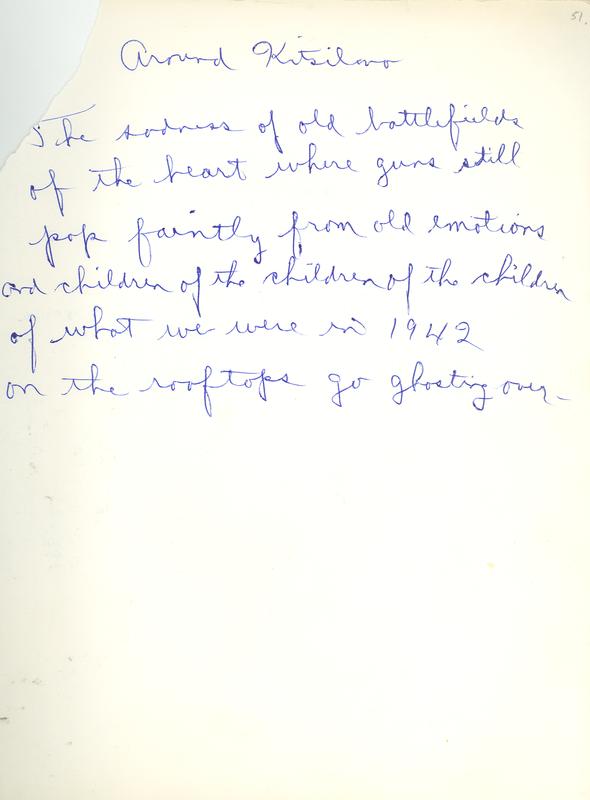 51.
Around Kitsilano
The sadness of old battlefields
of the heart where guns still
pop faintly from old emotions
and children of the children of the children
of what we were in 1942
on the rooftops go ghosting over–